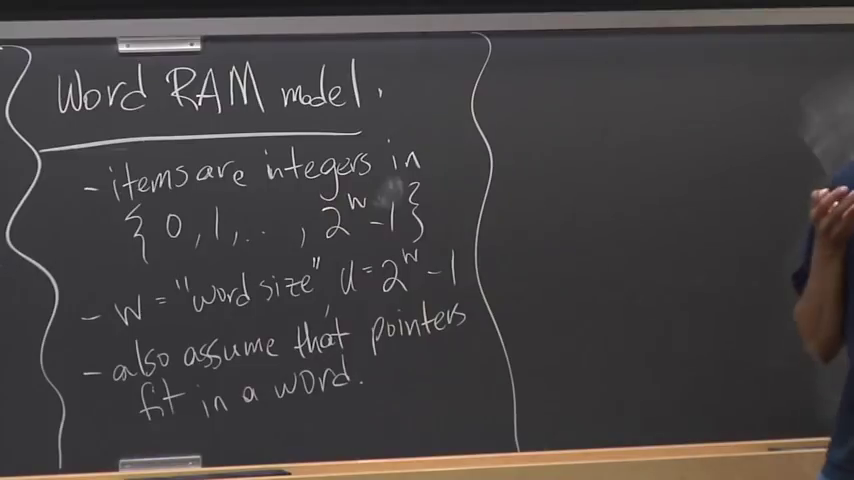 Word RAM model.
- items are integers in
{0, 1, ..., 2^w - 1}
- w = "word size", u = 2^w - 1
- also assume that pointers
fit in a word.